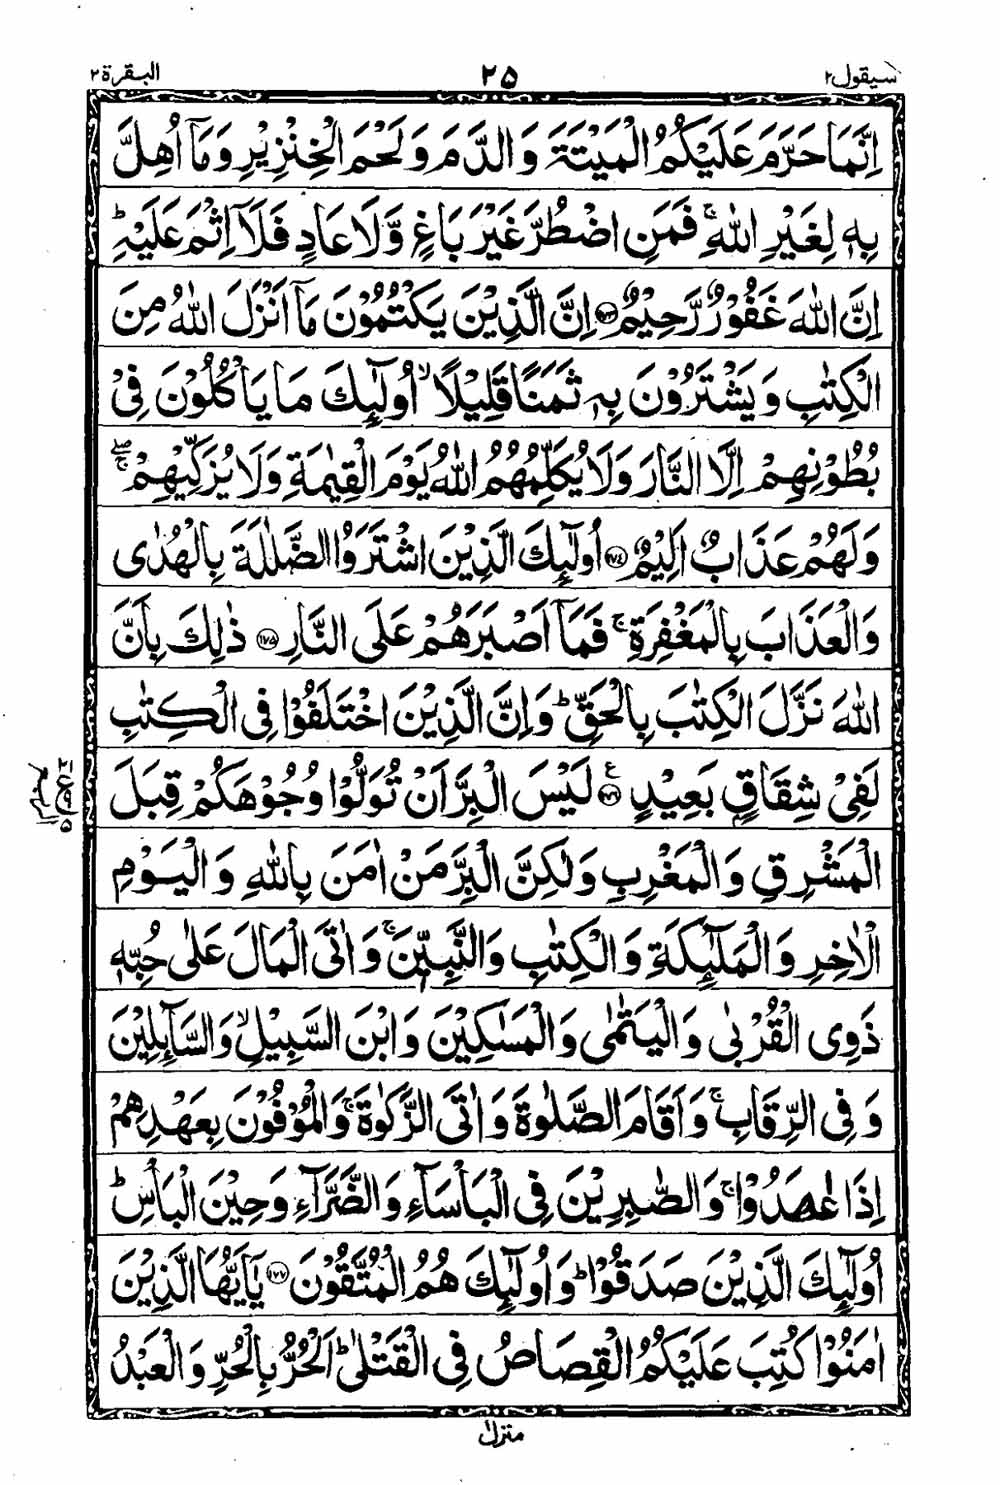 سيقول٢ ٢٥ البقرة٢
اِنَّمَا حَرَّمَ عَلَيْكُمُ الْمَيْتَةَ وَالدَّمَ وَلَحْمَ الْخِنْزِيْرِ وَمَآ اُهِلَّ
بِهٖ لِغَيْرِ اللّٰهِ ۚ فَمَنِ اضْطُرَّ غَيْرَ بَاغٍ وَّلَا عَادٍ فَلَآ اِثْمَ عَلَيْهِ ؕ
اِنَّ اللّٰهَ غَفُوْرٌ رَّحِيْمٌ ﴿۱۷۳﴾ اِنَّ الَّذِيْنَ يَكْتُمُوْنَ مَآ اَنْزَلَ اللّٰهُ مِنَ
الْكِتٰبِ وَيَشْتَرُوْنَ بِهٖ ثَمَنًا قَلِيْلًا ۙ اُولٰٓئِكَ مَا يَاْكُلُوْنَ فِيْ
بُطُوْنِهِمْ اِلَّا النَّارَ وَلَا يُكَلِّمُهُمُ اللّٰهُ يَوْمَ الْقِيٰمَةِ وَلَا يُزَكِّيْهِمْ ۖۚ
وَلَهُمْ عَذَابٌ اَلِيْمٌ ﴿۱۷۴﴾ اُولٰٓئِكَ الَّذِيْنَ اشْتَرَوُا الضَّلٰلَةَ بِالْهُدٰى
وَالْعَذَابَ بِالْمَغْفِرَةِ ۚ فَمَآ اَصْبَرَهُمْ عَلَى النَّارِ ﴿۱۷۵﴾ ذٰلِكَ بِاَنَّ
اللّٰهَ نَزَّلَ الْكِتٰبَ بِالْحَقِّ ؕ وَاِنَّ الَّذِيْنَ اخْتَلَفُوْا فِي الْكِتٰبِ
لَفِيْ شِقَاقٍۭ بَعِيْدٍ ﴿۱۷۶﴾ ع لَيْسَ الْبِرَّ اَنْ تُوَلُّوْا وُجُوْهَكُمْ قِبَلَ
الْمَشْرِقِ وَالْمَغْرِبِ وَلٰكِنَّ الْبِرَّ مَنْ اٰمَنَ بِاللّٰهِ وَالْيَوْمِ
الْاٰخِرِ وَالْمَلٰٓئِكَةِ وَالْكِتٰبِ وَالنَّبِيّٖنَ ۚ وَاٰتَى الْمَالَ عَلٰى حُبِّهٖ
ذَوِي الْقُرْبٰى وَالْيَتٰمٰى وَالْمَسٰكِيْنَ وَابْنَ السَّبِيْلِ ۙ وَالسَّآئِلِيْنَ
وَفِي الرِّقَابِ ۚ وَاَقَامَ الصَّلٰوةَ وَاٰتَى الزَّكٰوةَ ۚ وَالْمُوْفُوْنَ بِعَهْدِهِمْ
اِذَا عٰهَدُوْا ۚ وَالصّٰبِرِيْنَ فِي الْبَاْسَآءِ وَالضَّرَّآءِ وَحِيْنَ الْبَاْسِ ؕ
اُولٰٓئِكَ الَّذِيْنَ صَدَقُوْا ؕ وَاُولٰٓئِكَ هُمُ الْمُتَّقُوْنَ ﴿۱۷۷﴾ يٰٓاَيُّهَا الَّذِيْنَ
اٰمَنُوْا كُتِبَ عَلَيْكُمُ الْقِصَاصُ فِي الْقَتْلٰى ؕ اَلْحُرُّ بِالْحُرِّ وَالْعَبْدُ
منزل١